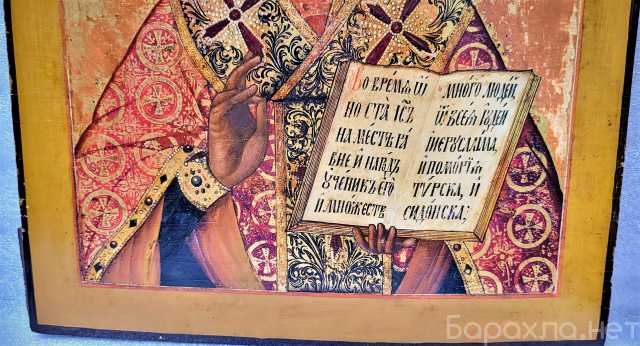 Во времѧ ѿ
но ста Іс҃ъ
на мѣстѣ ра
вне и народ
ученикъ его
и множеств
много людей
ѿ всеѧ Їꙋдеи
Іерꙋслима,
и поморїѧ
турска, и
сидонска:
Барахла.нет